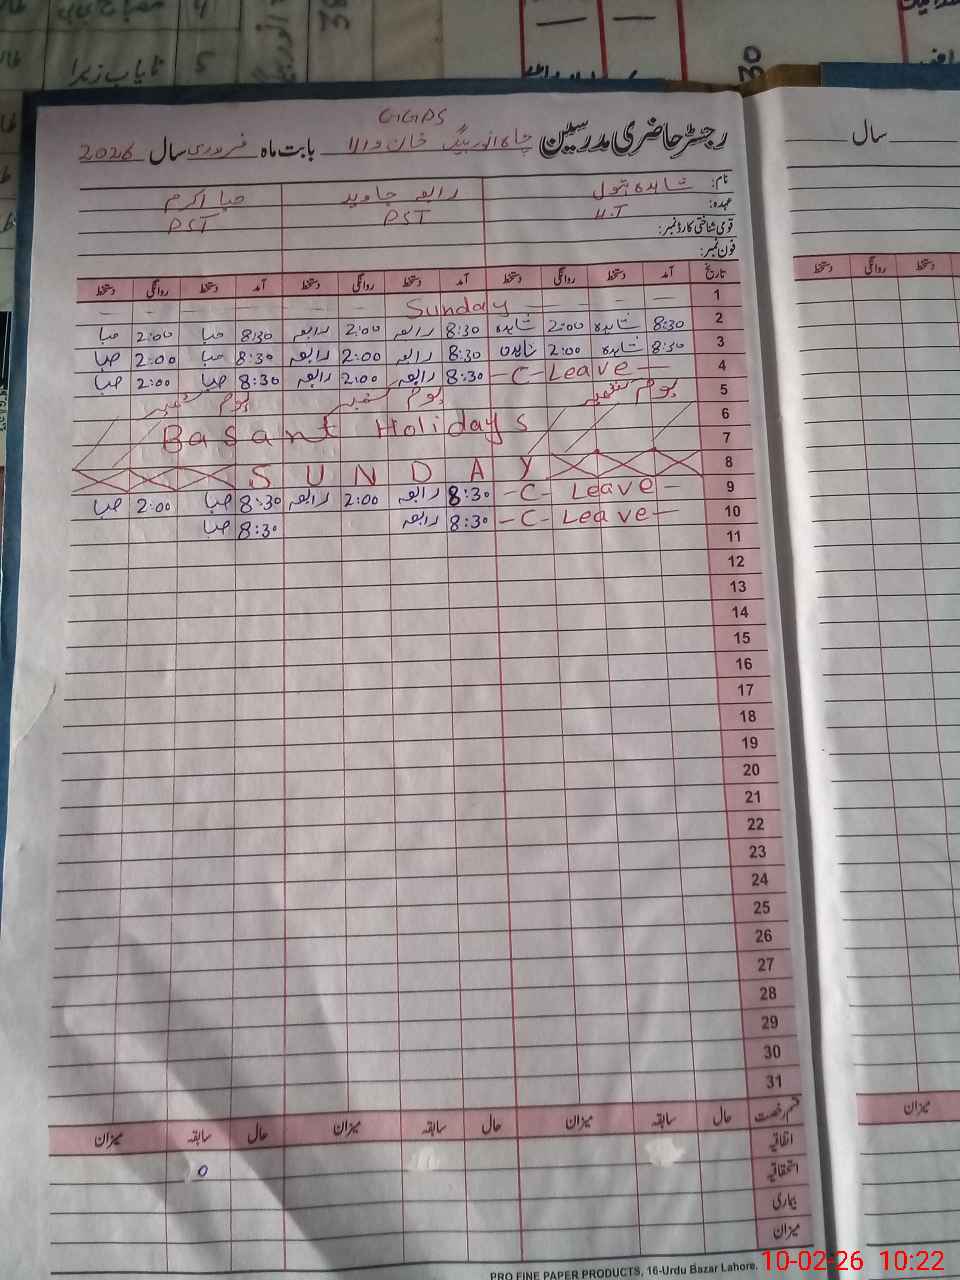 رجسٹر حاضری مدرسین چاہ انور بیگ خان والا بابت ماہ فروری سال 2026
GGPS
سال
نام: شاہدہ بتول رابعہ جاوید حبا اکرم
عہدہ: U.T PST PST
قومی شناختی کارڈ نمبر:
فون نمبر:
تاریخ آمد دستخط روانگی دستخط آمد دستخط روانگی دستخط آمد دستخط روانگی دستخط
دستخط روانگی دستخط
1 Sunday
2 8:30 شاہدہ 2:00 شاہدہ 8:30 رابعہ 2:00 رابعہ 8:30 حبا 2:00 حبا
3 8:30 شاہدہ 2:00 شاہدہ 8:30 رابعہ 2:00 رابعہ 8:30 حبا 2:00 حبا
4 - C - Leave - 8:30 رابعہ 2:00 رابعہ 8:30 حبا 2:00 حبا
5 یوم کشمیر یوم کشمیر یوم کشمیر
6 Basant Holidays
7
8 SUNDAY
9 - C - Leave - 8:30 رابعہ 2:00 رابعہ 8:30 حبا 2:00 حبا
10 - C - Leave - 8:30 رابعہ 8:30 حبا
11
12
13
14
15
16
17
18
19
20
21
22
23
24
25
26
27
28
29
30
31
قسم رخصت حال سابقہ میزان حال سابقہ میزان حال سابقہ میزان
میزان
اتفاقیہ
استحقاقیہ 0
بیماری
میزان
PRO FINE PAPER PRODUCTS, 16-Urdu Bazar Lahore.
10-02-26 10:22